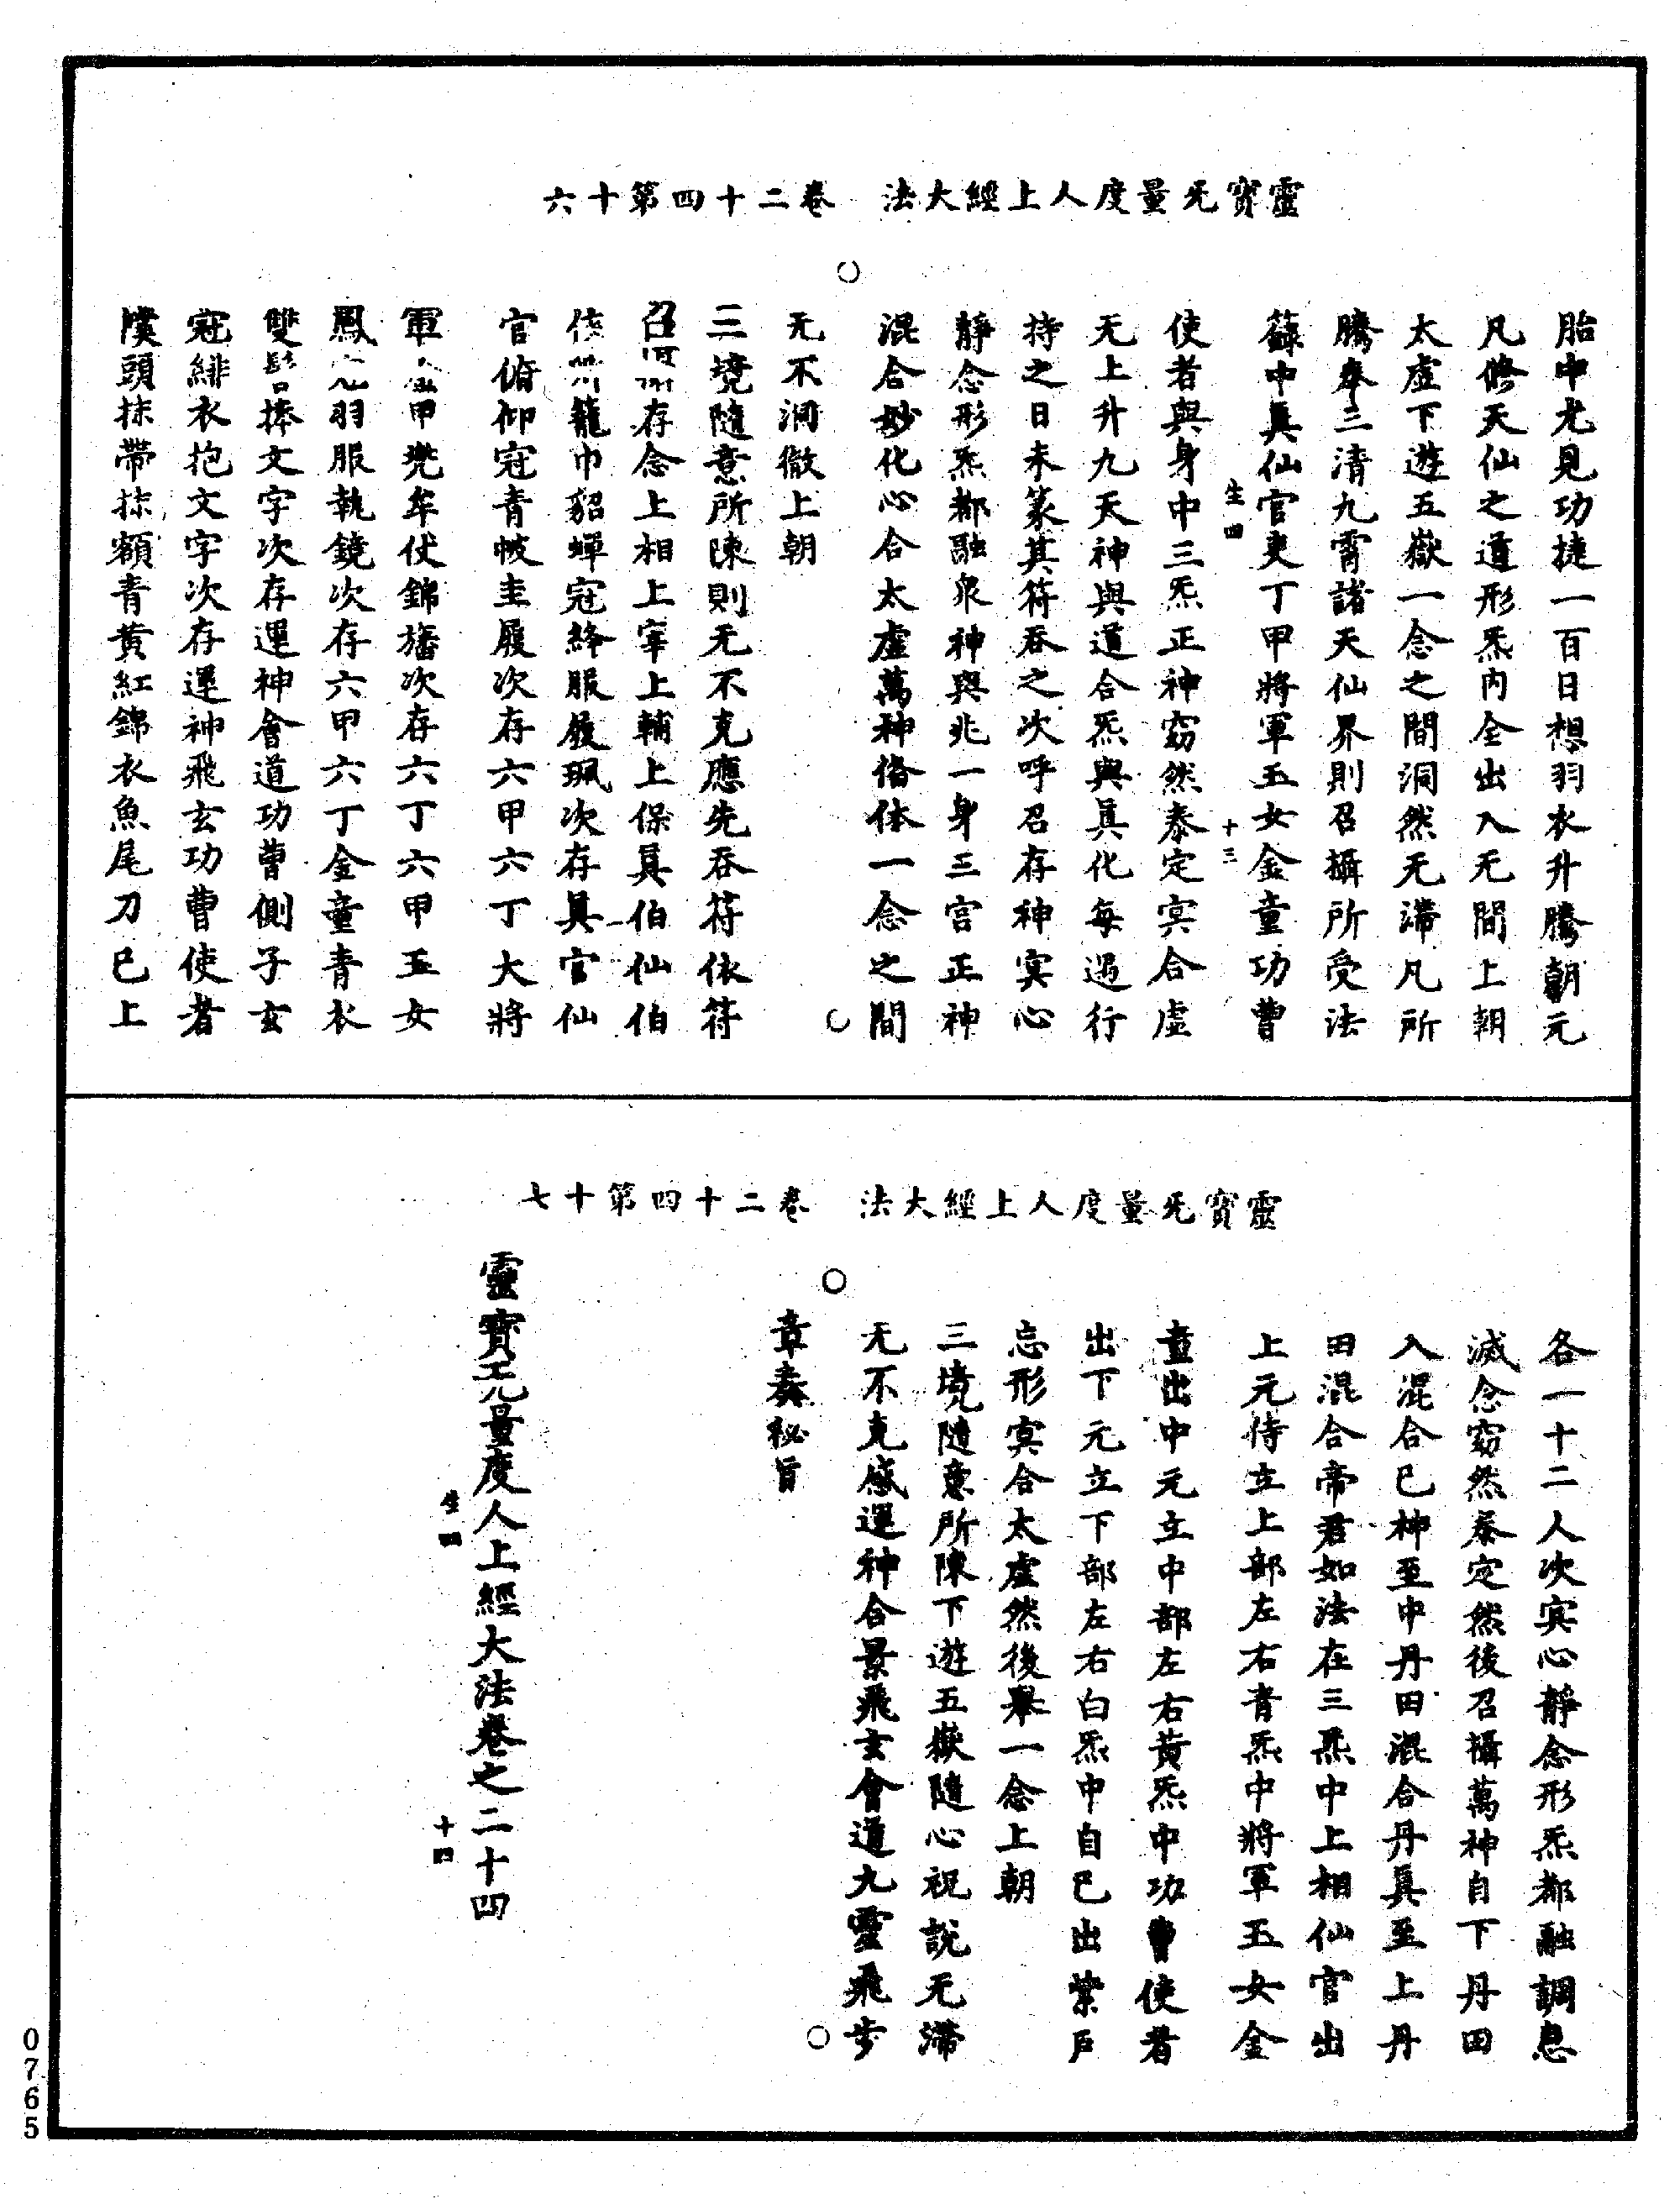 靈寶无量度人上經大法　卷二十四第十六
胎中尤見功捷一百日想羽衣升騰朝元
凡修天仙之道形炁内全出入无間上朝
太虛下遊五嶽一念之間洞然无滯凡所
騰奉三清九霄諸天仙界則召攝所受法
籙中眞仙官吏丁甲將軍玉女金童功曹
生四　十三
使者與身中三炁正神窈然泰定㝠合虛
无上升九天神與道合炁與眞化每遇行
持之日未篆其符吞之次呼召存神㝠心
靜念形炁都融泉神與兆一身三宫正神
混合妙化心合太虛萬神俻体一念之間
无不洞徹上朝
三境隨意所陳則无不克應先吞符依符
召存念上相上宰上輔上保眞伯仙伯
籠巾貂蟬冠絳服履珮次存眞官仙
官俯仰冠青帔圭履次存六甲六丁大將
軍甲兠牟仗錦旛次存六丁六甲玉女
鳳羽服執鏡次存六甲六丁金童青衣
雙髻捧文字次存運神會道功曹側子玄
冠緋衣抱文字次存運神飛玄功曹使者
幞頭抹帶抹額青黄紅錦衣魚尾刀已上
靈寶无量度人上經大法　卷二十四第十七
各一十二人次㝠心靜念形炁都融調息
滅念窈然泰定然後召攝萬神自下丹田
入混合已神至中丹田混合丹眞至上丹
田混合帝君如法在三炁中上相仙官出
上元侍立上部左右青炁中將軍玉女金
童出中元立中部左右黄炁中功曹使者
出下元立下部左右白炁中自已出紫戶
忘形㝠合太虛然後舉一念上朝
三境隨意所陳下遊五嶽隨心祝說无滯
无不克感運神合景飛玄會道九靈飛步
章奏祕旨
靈寶无量度人上經大法卷之二十四
生四　十四
0765